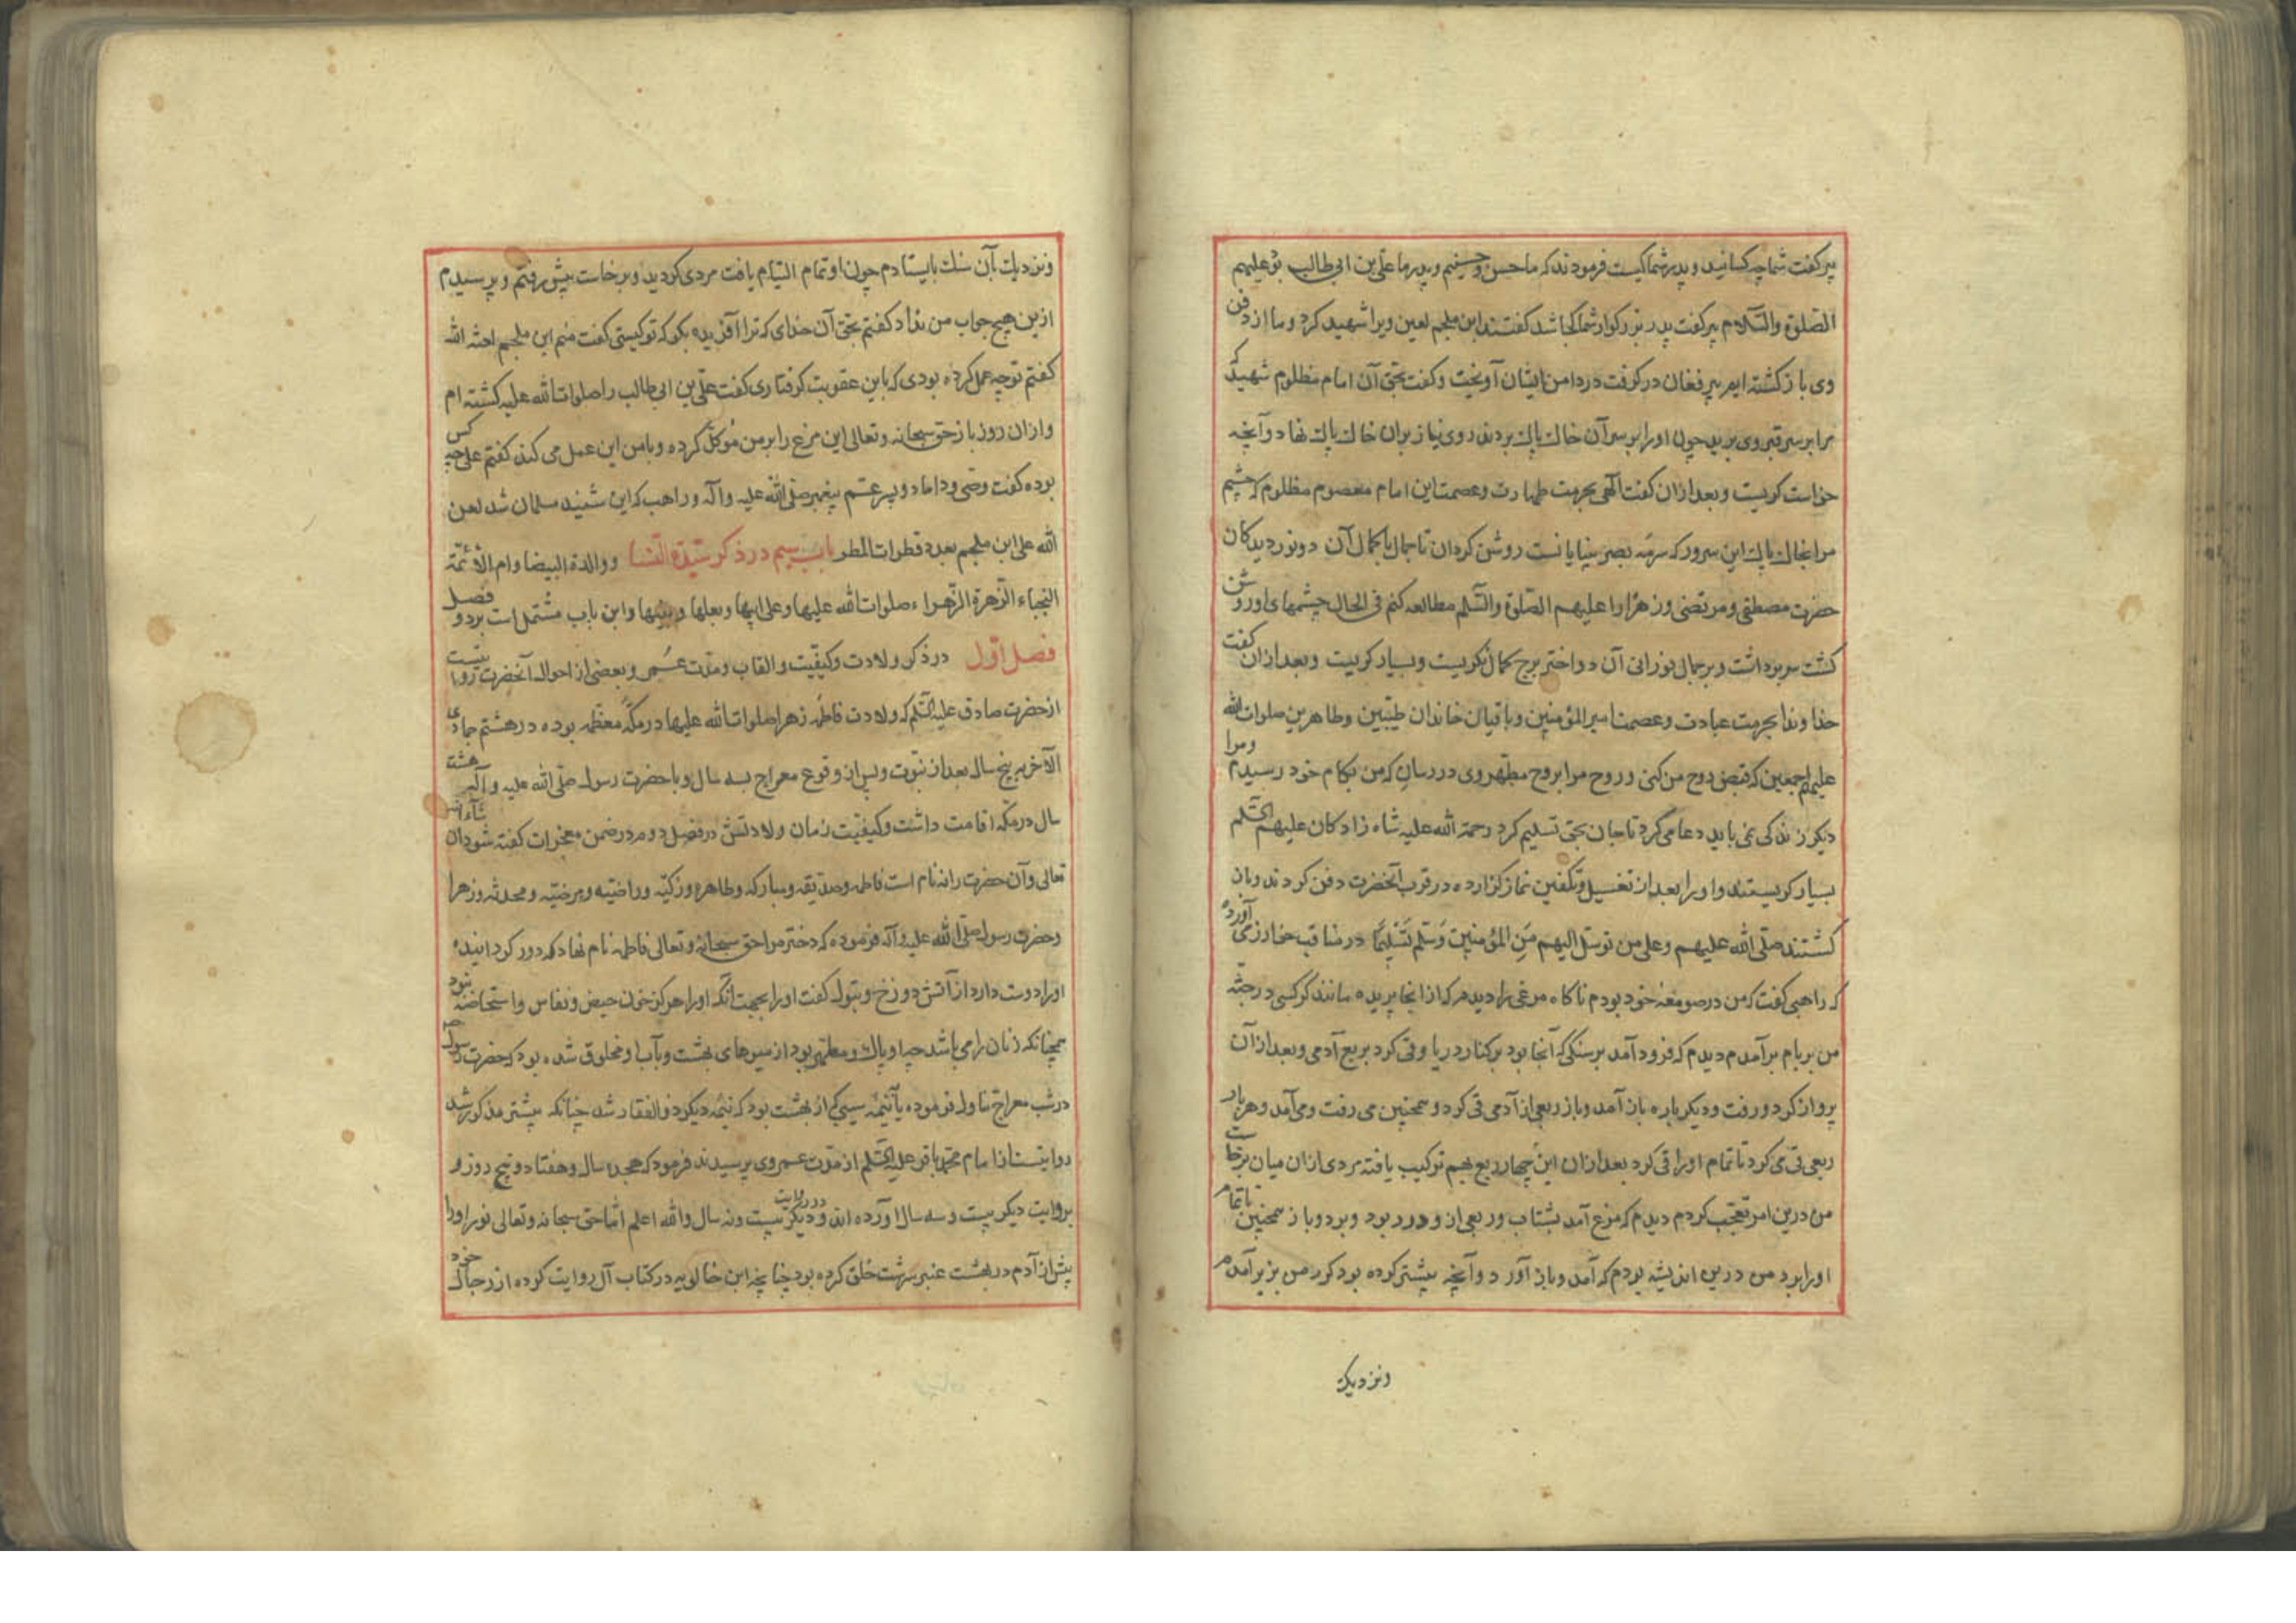 پیر کفت شما چه کسانید و پدر شما کیست فرمودند که ما حسن و حسینیم و پدر ما علی بن ابی طالب بود علیهم
الصلوة والسلام پیر کفت پدر بزرکوار شما کجا شد کفتند ابن ملجم لعین ویرا شهید کرد و ما از دفن
وی باز کشته ایم پیر فغان در کرفت در دامن ایشان آویخت و کفت بحق آن امام مظلوم شهید که
مرا بر سر قبر وی برید چون او را بر سر آن خاك پاك بردند روی نیاز بران خاك پاك نهاد و آنچه
خواست کریست و بعد ازان کفت الهی بحرمت طهارت و عصمت این امام معصوم مظلوم که چشم
مرا بخاك پاك این سرور که سرمه بصر بینایانست روشن کردان تا جمال با کمال آن دو نور دیدکان
حضرت مصطفی و مرتضی و زهرا را علیهم الصلوة والسلم مطالعه کنم فی الحال چشمهای او روشن
کشت سر برداشت و بر جمال نورانی آن دو اختر برج کمال نکریست و بسیار کریست و بعد ازان کفت
خداوندا بحرمت عبادت و عصمت امیر المؤمنین و باقیان خاندان طیبین و طاهرین صلوات الله
علیهم اجمعین که قبض روح من کنی و روح مرا بروح مطهر وی در رسان که من بکام خود رسیدم و مرا
دیکر زندکی نمی باید دعا می کرد تا جان بحق تسلیم کرد رحمة الله علیه شاه زادکان علیهم السلم
بسیار کریستند و او را بعد از تغسیل و تکفین نماز کزارده در قرب آنحضرت دفن کردند و باز
کشتند صلی الله علیهم وعلی من توسل الیهم من المؤمنین وسلم تسلیما در مناقب خوارزمی آورده
که راهبی کفت که من در صومعه خود بودم ناکاه مرغی را دیدم که از انجا پریده مانند کرکسی در جثه
من بر بام برآمدم دیدم که فرود آمد بر سنکی که آنجا بود بر کنار دریا و قی کرد بربع آدمی و بعد ازآن
پرواز کرد و رفت و دیکر باره باز آمد و باز ربعی از آدمی قی کرد و همچنین می رفت و می آمد و هر بار
ربعی قی می کرد تا تمام او را قی کرد بعد ازان این چهار ربع بهم ترکیب یافته مردی ازان میان برخاست
من درین امر تعجب کردم دیدم که مرغ آمد بشتاب و ربعی از و در ربود و برد و باز همچنین تا تمام
او را برد من درین اندیشه بودم که آمد و باز آورد و آنچه پیشتر کرده بود کرد من بزیر آمدم
ونزدیک
ونزدیك بآن سنك بایستادم چون او تمام التیام یافت مردی کردید و برخاست پیش رفتم و پرسیدم
ازین هیچ جواب من نداد کفتم بحق آن خدای که ترا آفریده بکو که تو کیستی کفت منم ابن ملجم لعنه الله
کفتم تو چه عمل کرده بودی که باین عقوبت کرفتاری کفت علی بن ابی طالب را صلوات الله علیه کشته ام
و ازان روز باز حق سبحانه وتعالی این مرغ را بر من موکل کرده و با من این عمل می کند کفتم علی چه کس
بوده کفت وصی و داماد و پسر عم پیغمبر صلی الله علیه وآله و راهب که این شنید مسلمان شد لعن
الله علی ابن ملجم بعدد قطرات المطر باب سیم در ذکر سیدة النسا و والدة البیضا وام الائمة
النجباء الزهرة الزهراء صلوات الله علیها وعلی ابیها وبعلها وبنیها و این باب مشتمل است بر دو فصل
فصل اول در ذکر ولادت وکیفیت و القاب و مدت عمر و بعضی از احوال آنحضرت روایتست
از حضرت صادق علیه السلم که ولادت فاطمه زهرا صلوات الله علیها در مکه معظمه بوده در هشتم جمادی
الآخر به پنج سال بعد از نبوت و پس از وقوع معراج بسه سال و با حضرت رسول صلی الله علیه و آله هشت
سال در مکه اقامت داشت و کیفیت زمان ولادتش در فصل دوم در ضمن معجزات کفته شود ان شاء الله
تعالی و آن حضرت را نه نام است فاطمه و صدیقه و مبارکه و طاهره و زکیه و راضیه و مرضیه و محدثه و زهرا
و حضرت رسول صلی الله علیه وآله فرموده که دختر مرا حق سبحانه وتعالی فاطمه نام نهاد که دور کردانیده
او را دوست دارد از آتش دوزخ و بتول کفت او را بجهت آنکه او را هرکز خون حیض و نفاس و استحاضه نبود
همچنانکه زنان را می باشد چه او پاك و مطهر بود از میوهای بهشت و بآب او مخلوق شده بود که حضرت رسول
در شب معراج تناول فرموده یا نیمه سیبی از بهشت بود که نیمه دیکر ذوالفقار شد چنانکه پیشتر مذکور شد
روایتست از امام محمد باقر علیه السلم از مدت عمر وی پرسیدند فرمود که هجده سال و هفتاد و پنج روز و
بروایت دیکر بیست و سه سال آورده اند و در روایت دیکر بیست و نه سال والله اعلم اما حق سبحانه وتعالی نور او را
پیش از آدم در بهشت عنبر سرشت خلق کرده بود چنانچه ابن خالویه در کتاب آل روایت کرده از رجال خود